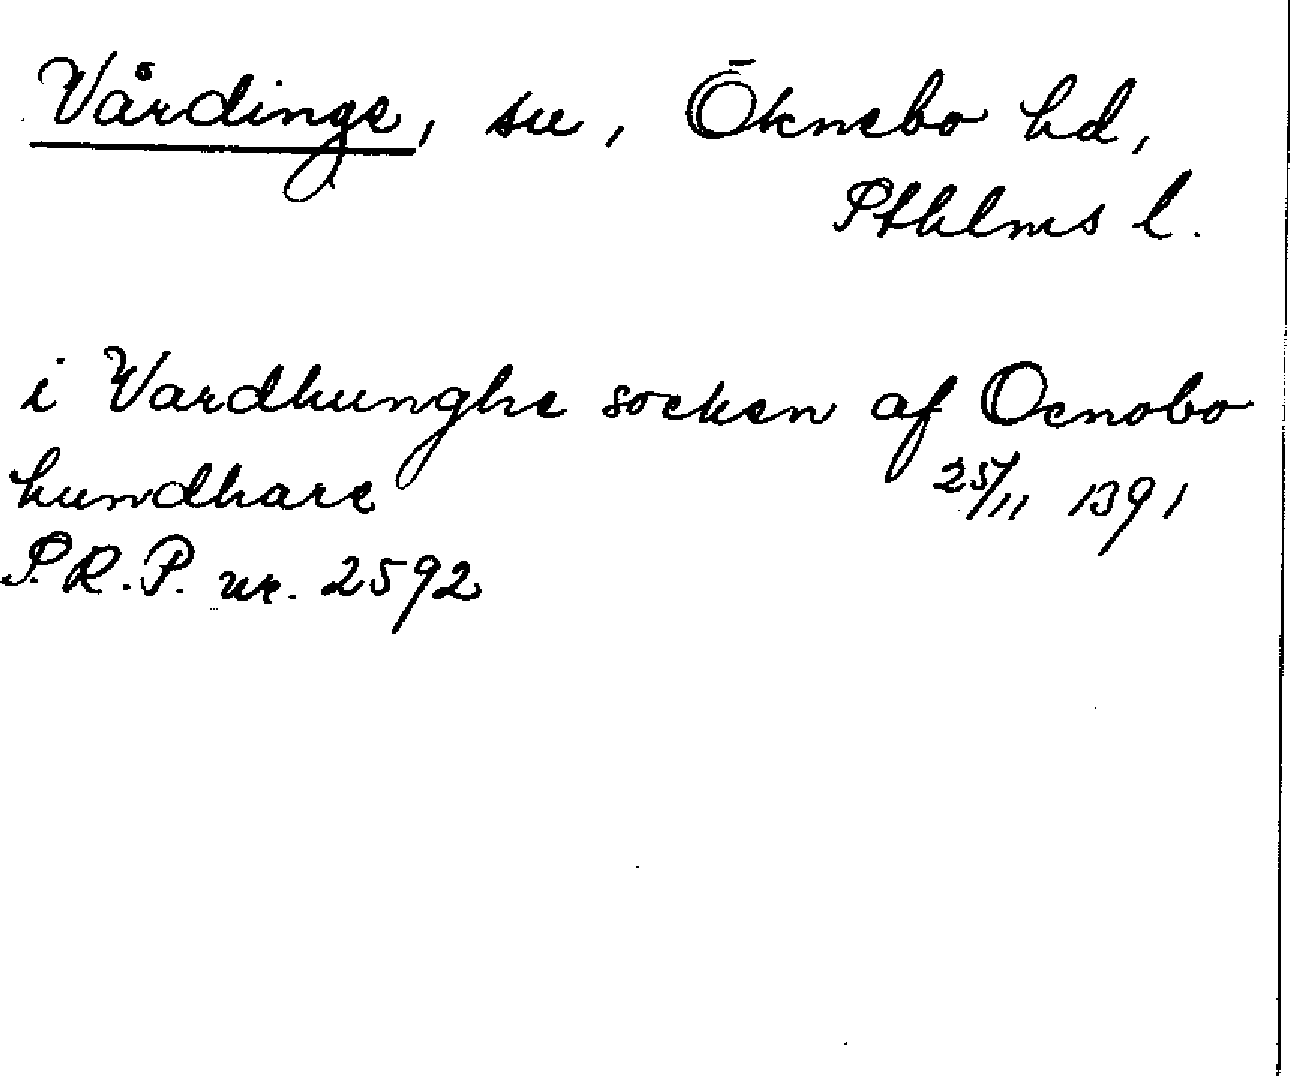 Vårdinge, sn, Öknebo hd,
Sthlms l.
i Vardhunghe socken af Ocnobo
hundhare 25/11 1391
S.R.P. nr. 2592